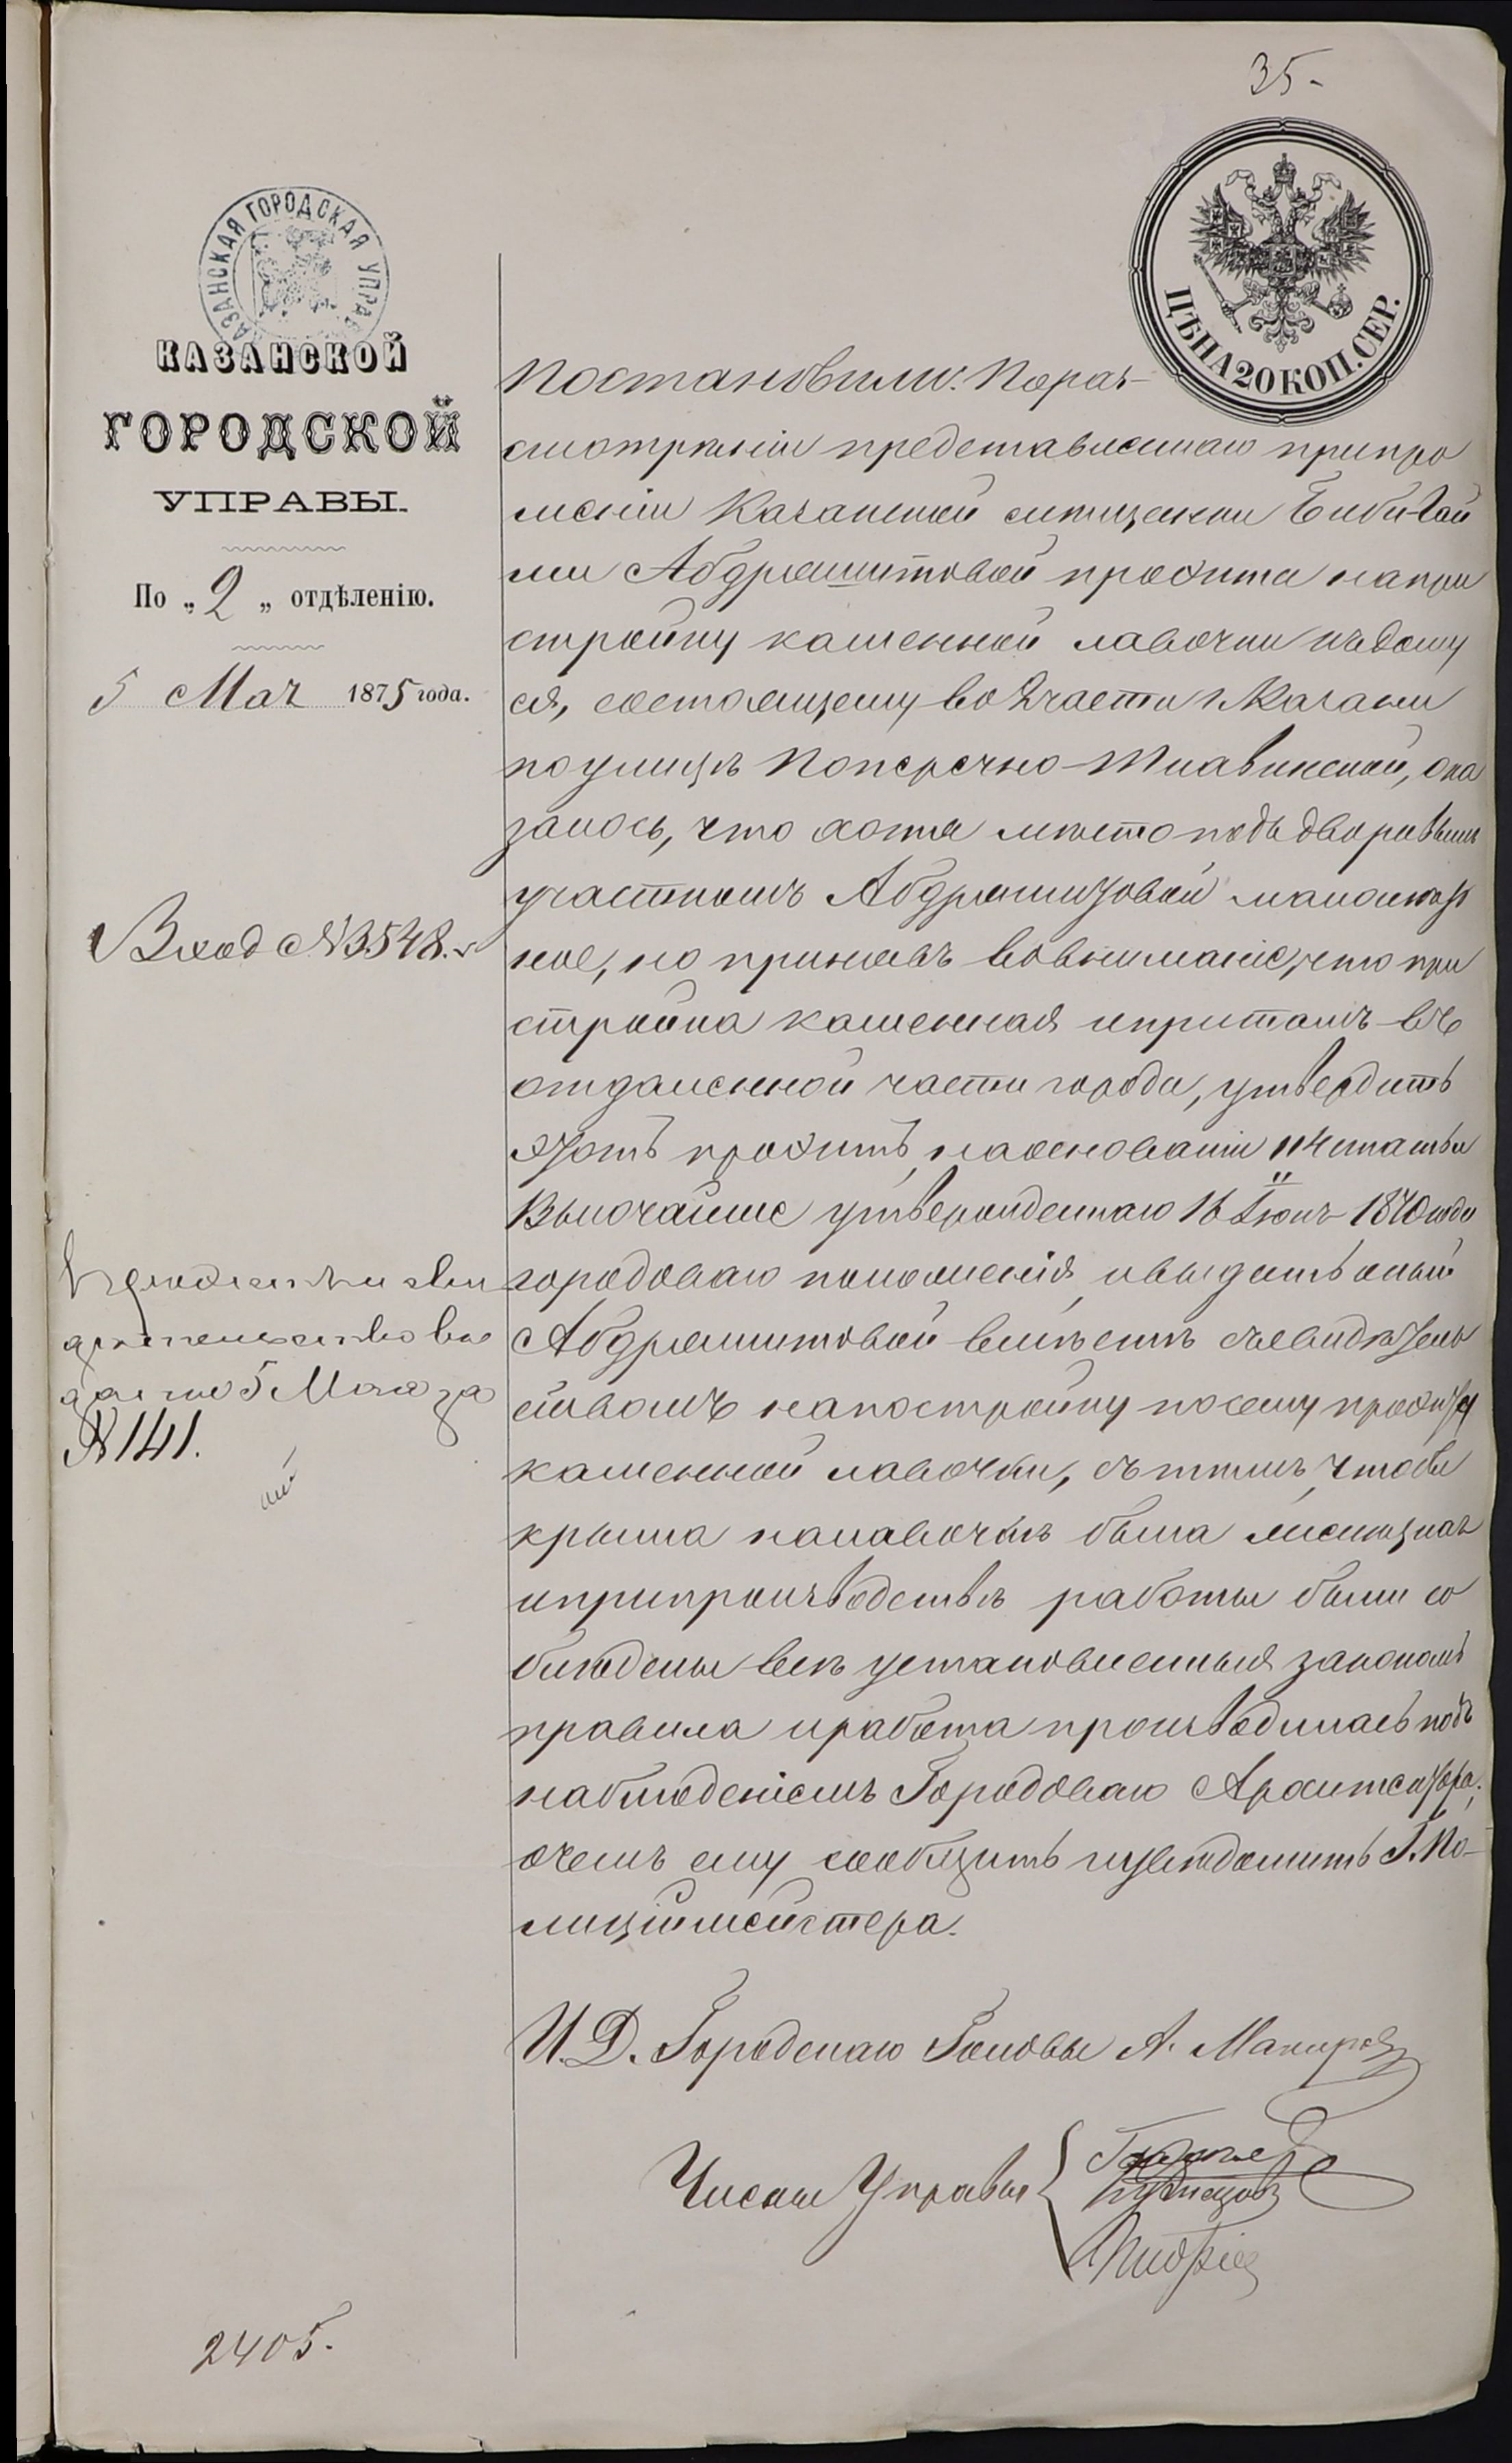 35-
КАЗАНСКАЯ ГОРОДСКАЯ УПРАВА
ЦѢНА 20 КОП. СЕР.
КАЗАНСКОЙ
ГОРОДСКОЙ
УПРАВЫ.
По „2„ отдѣленію.
5 Мая 1875 года.
Вход №3548.
2405.
Постановили: Пораз-
смотрѣніи представленнаго припро
шеніи Казанской мѣщанки Биби-Гай
ши Абдрашитовой проэкта напри
стройку каменной лавочки къдому
ея, состоящему во 2 части г. Казани
поулицѣ Поперечно-Тиавинской, ока
залось, что хотя мѣсто подъ дворовымъ
участкомъ Абдрашитовой малоснаж
ное, но принявъ вовниманіе, что при
стройка каменная ипритомъ въ
отдаленной части города, утвердить
этотъ проэктъ, наоснованіи 114 статьи
Высочайше утвержденнаго 16 Іюня 1870 года
городоваго положенія, ивыдать оный
Абдрашитовой вмѣстѣ съсвидѣтель
ствомъ напостройку посему проэкту
каменной лавочки, сътѣмъ, чтобы
крыша налавочкѣ была желѣзная
иприпроизводствѣ работы были со
блюдены всѣ установленныя закономъ
правила иработа производилась подъ
наблюденіемъ Городоваго Архитектора;
очемъ ему сообщить иувѣдомить Г. По-
лиціймейстера.
И. Д. Городскаго Головы А.
Члены Управы
Кузнецовъ
сви
дѣтельство вы
дано 5 Мая за
№ 141.